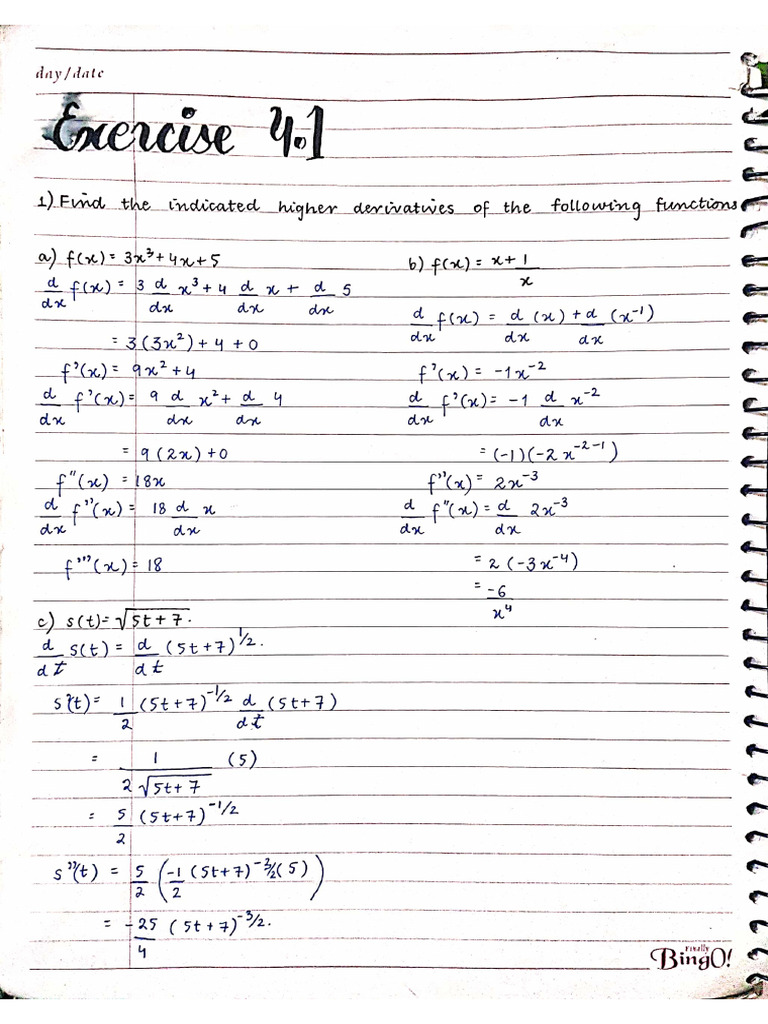 day/date
Exercise 4.1
1) Find the indicated higher derivatives of the following functions
a) f(x) = 3x³ + 4x + 5
d/dx f(x) = 3 d/dx x³ + 4 d/dx x + d/dx 5
= 3(3x²) + 4 + 0
f'(x) = 9x² + 4
d/dx f'(x) = 9 d/dx x² + d/dx 4
= 9(2x) + 0
f''(x) = 18x
d/dx f''(x) = 18 d/dx x
f'''(x) = 18
b) f(x) = x + 1/x
d/dx f(x) = d/dx (x) + d/dx (x⁻¹)
f'(x) = -1x⁻²
d/dx f'(x) = -1 d/dx x⁻²
= (-1)(-2x⁻²⁻¹)
f''(x) = 2x⁻³
d/dx f''(x) = d/dx 2x⁻³
= 2(-3x⁻⁴)
= -6/x⁴
c) s(t) = √(5t + 7).
d/dt s(t) = d/dt (5t + 7)^1/2.
s'(t) = 1/2 (5t + 7)^-1/2 d/dt (5t + 7)
= 1/(2√(5t + 7)) (5)
= 5/2 (5t + 7)^-1/2
s''(t) = 5/2 (-1/2 (5t + 7)^-3/2 (5))
= -25/4 (5t + 7)^-3/2.
Finally
BingO!